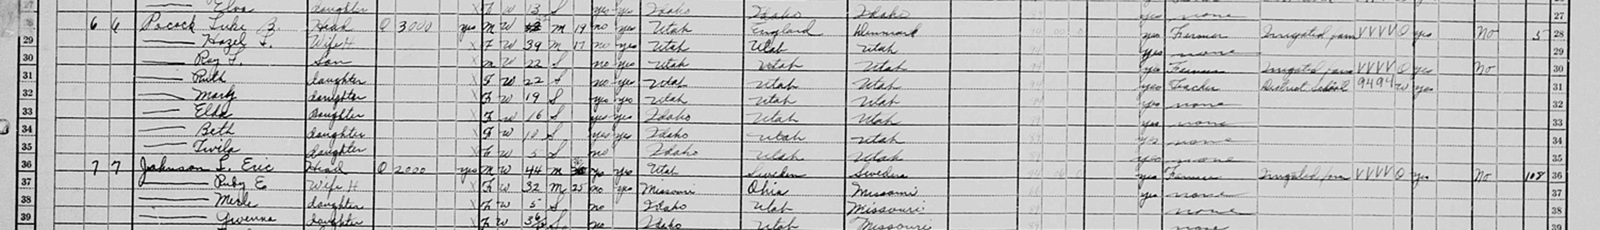 27 Elva daughter F W 13 S yes yes Idaho Idaho Idaho yes none 27
6 6 Pocock Luke B. Head O 3000 yes M W M 19 no yes Utah England Denmark yes Farmer Irrigated farm VVVV O yes No 5 28
29 Hazel F. Wife H F W 39 M 17 no yes Utah Utah Utah yes none 29
30 Ray L. Son M W 22 S no yes Utah Utah Utah yes Farmer Irrigated farm VVVV O yes No 30
31 Ruth daughter F W 22 S no yes Utah Utah Utah yes Teacher District School 9494 W yes 31
32 Mary daughter F W 19 S yes yes Utah Utah Utah yes none 32
33 Elda daughter F W 16 S yes yes Idaho Utah Utah yes none 33
34 Beth daughter F W S yes yes Idaho Utah Utah none 34
35 Twila daughter F W 5 S no Idaho Utah Utah none 35
36 7 7 Johnson L. Eric Head O 2000 yes M W 44 M yes Utah Sweden Sweden yes Farmer Irrigated farm VVVV O yes No 108 36
37 Ruby E Wife H F W 32 M 25 no yes Missouri Ohio Missouri yes none 37
38 Merle daughter F W 5 S no Idaho Utah Missouri none 38
39 Gwenna daughter F W S no Idaho Utah Missouri none 39